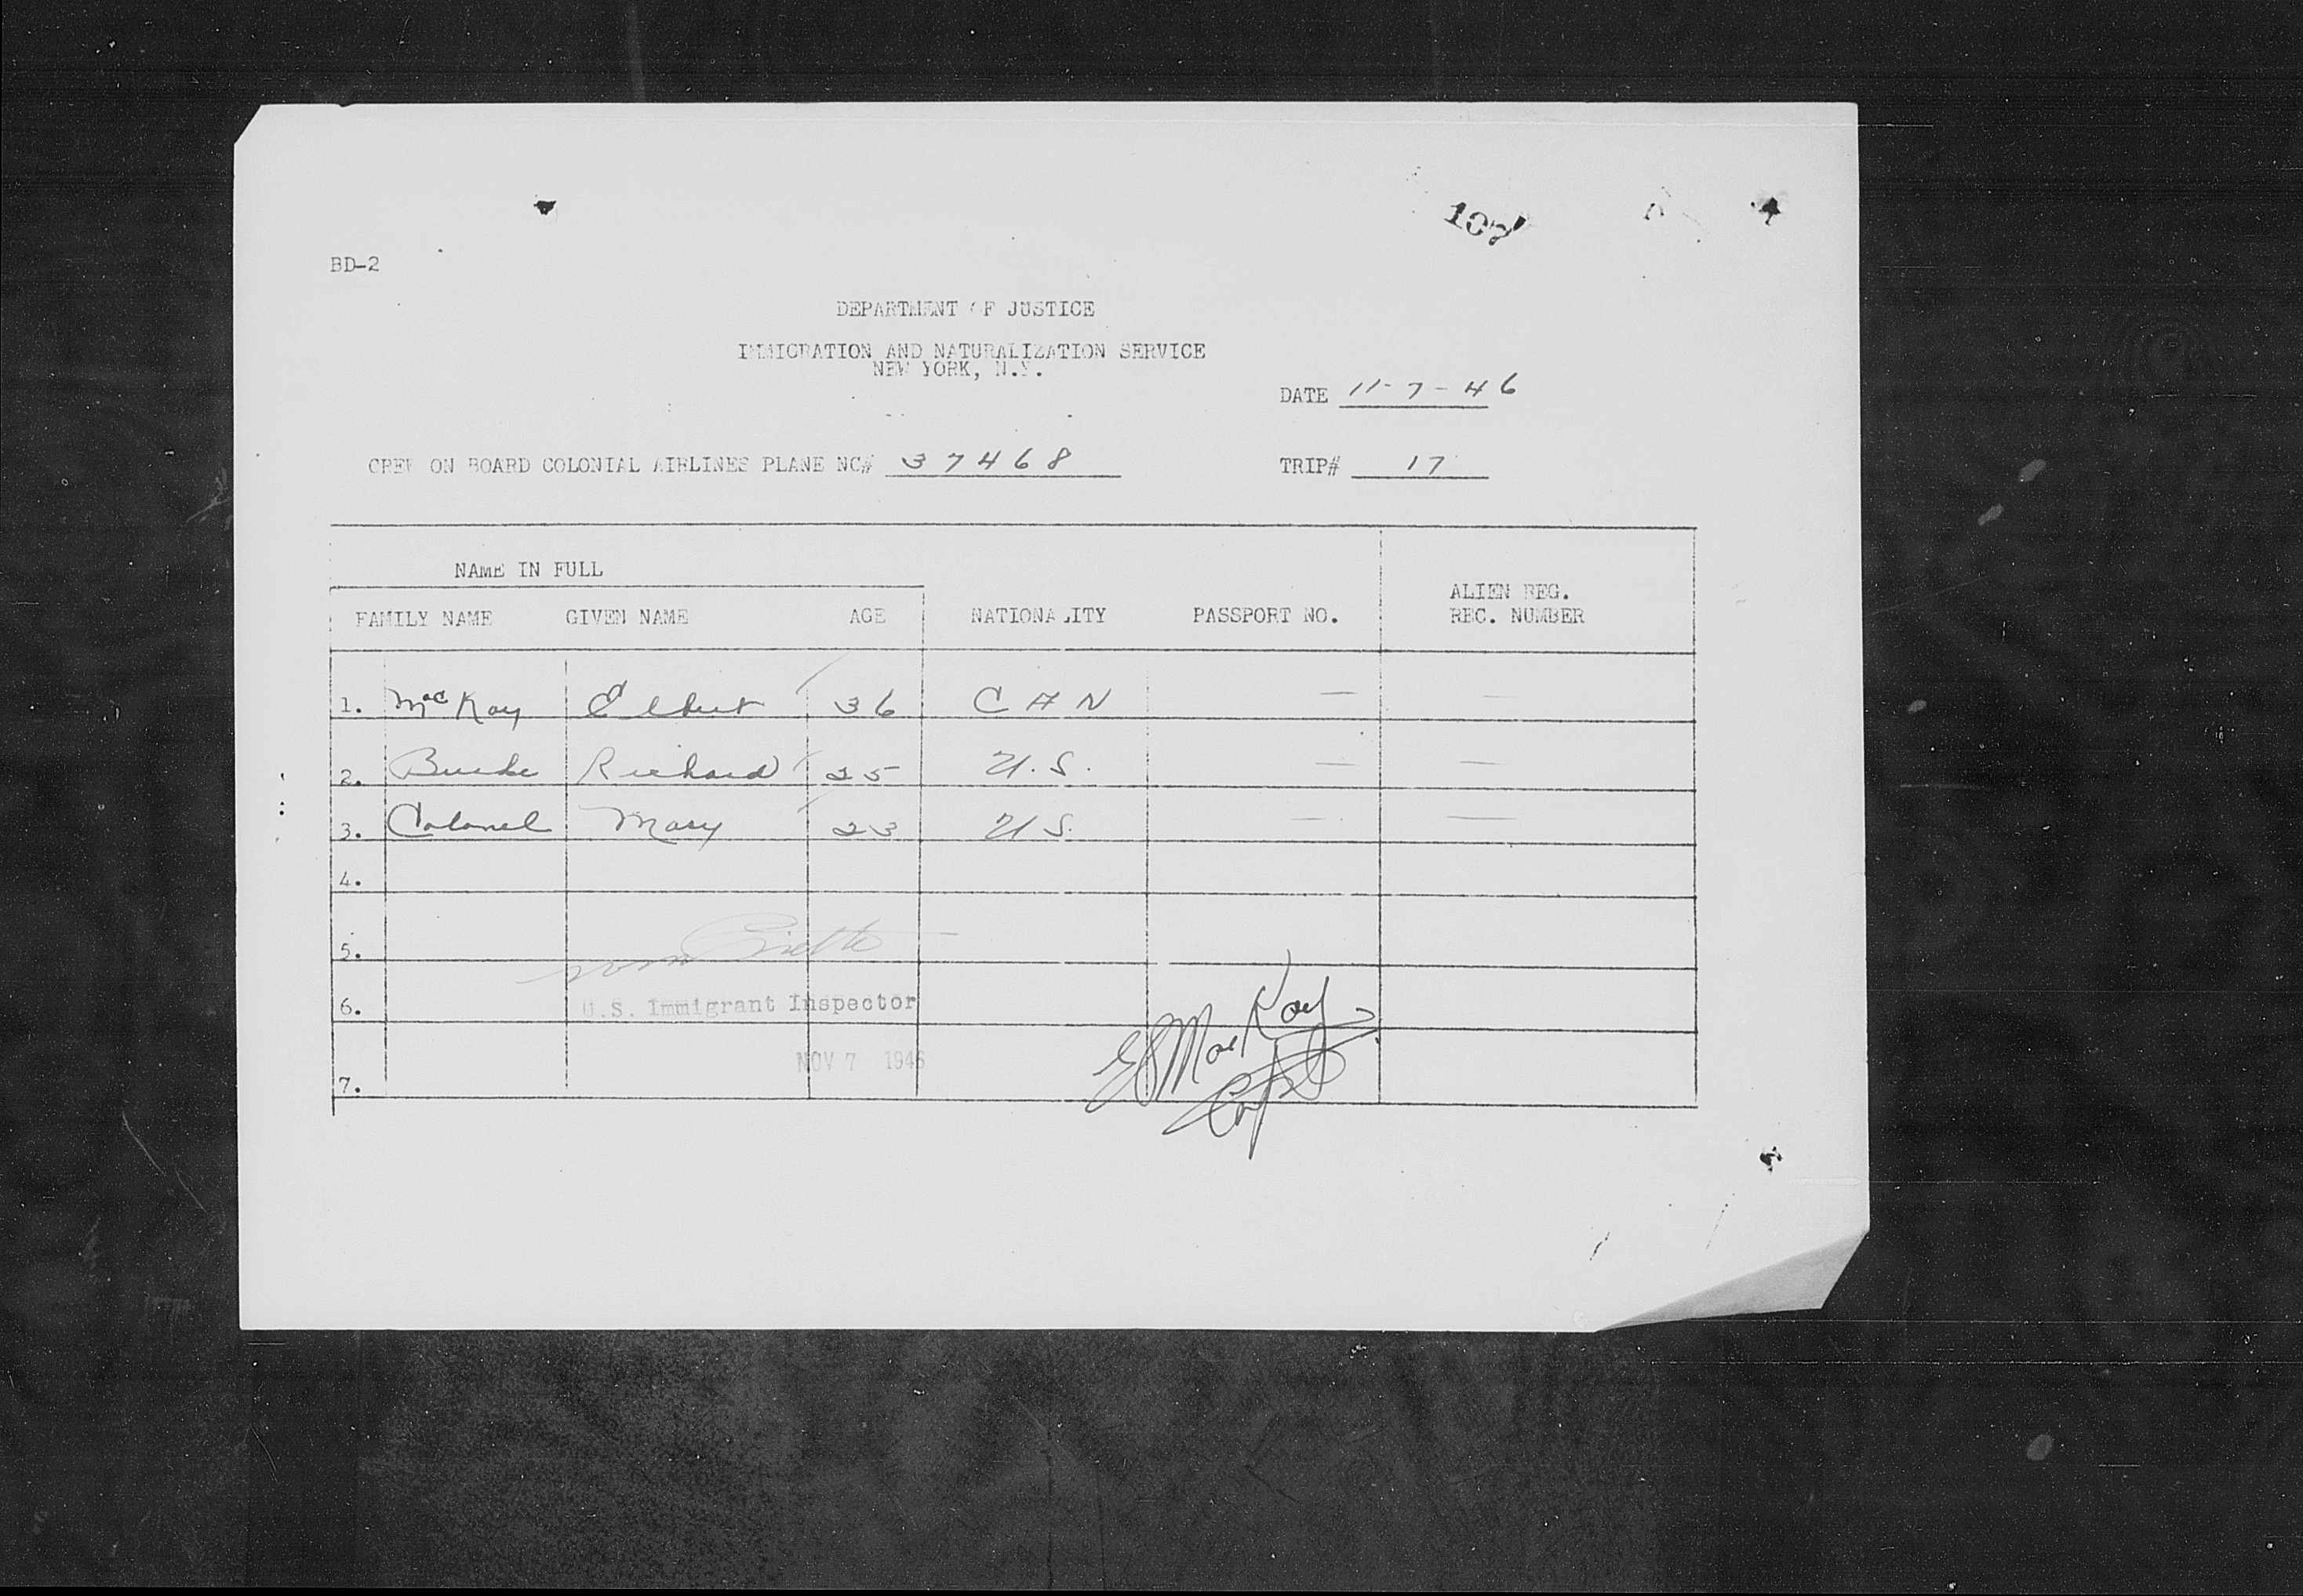 107
BD-2
DEPARTMENT OF JUSTICE
IMMIGRATION AND NATURALIZATION SERVICE
NEW YORK, N.Y.
DATE 11-7-46
CREW ON BOARD COLONIAL AIRLINES PLANE NC# 37468 TRIP# 17
NAME IN FULL
FAMILY NAME GIVEN NAME AGE NATIONALITY PASSPORT NO. ALIEN REG. REC. NUMBER
1. MacKay Elbert 36 CAN — —
2. Burke Richard 25 U.S. — —
3. Colonel Mary 23 U.S. — —
4.
5.
6. U.S. Immigrant Inspector
E MacKay
NOV 7 1946
Capt
7.